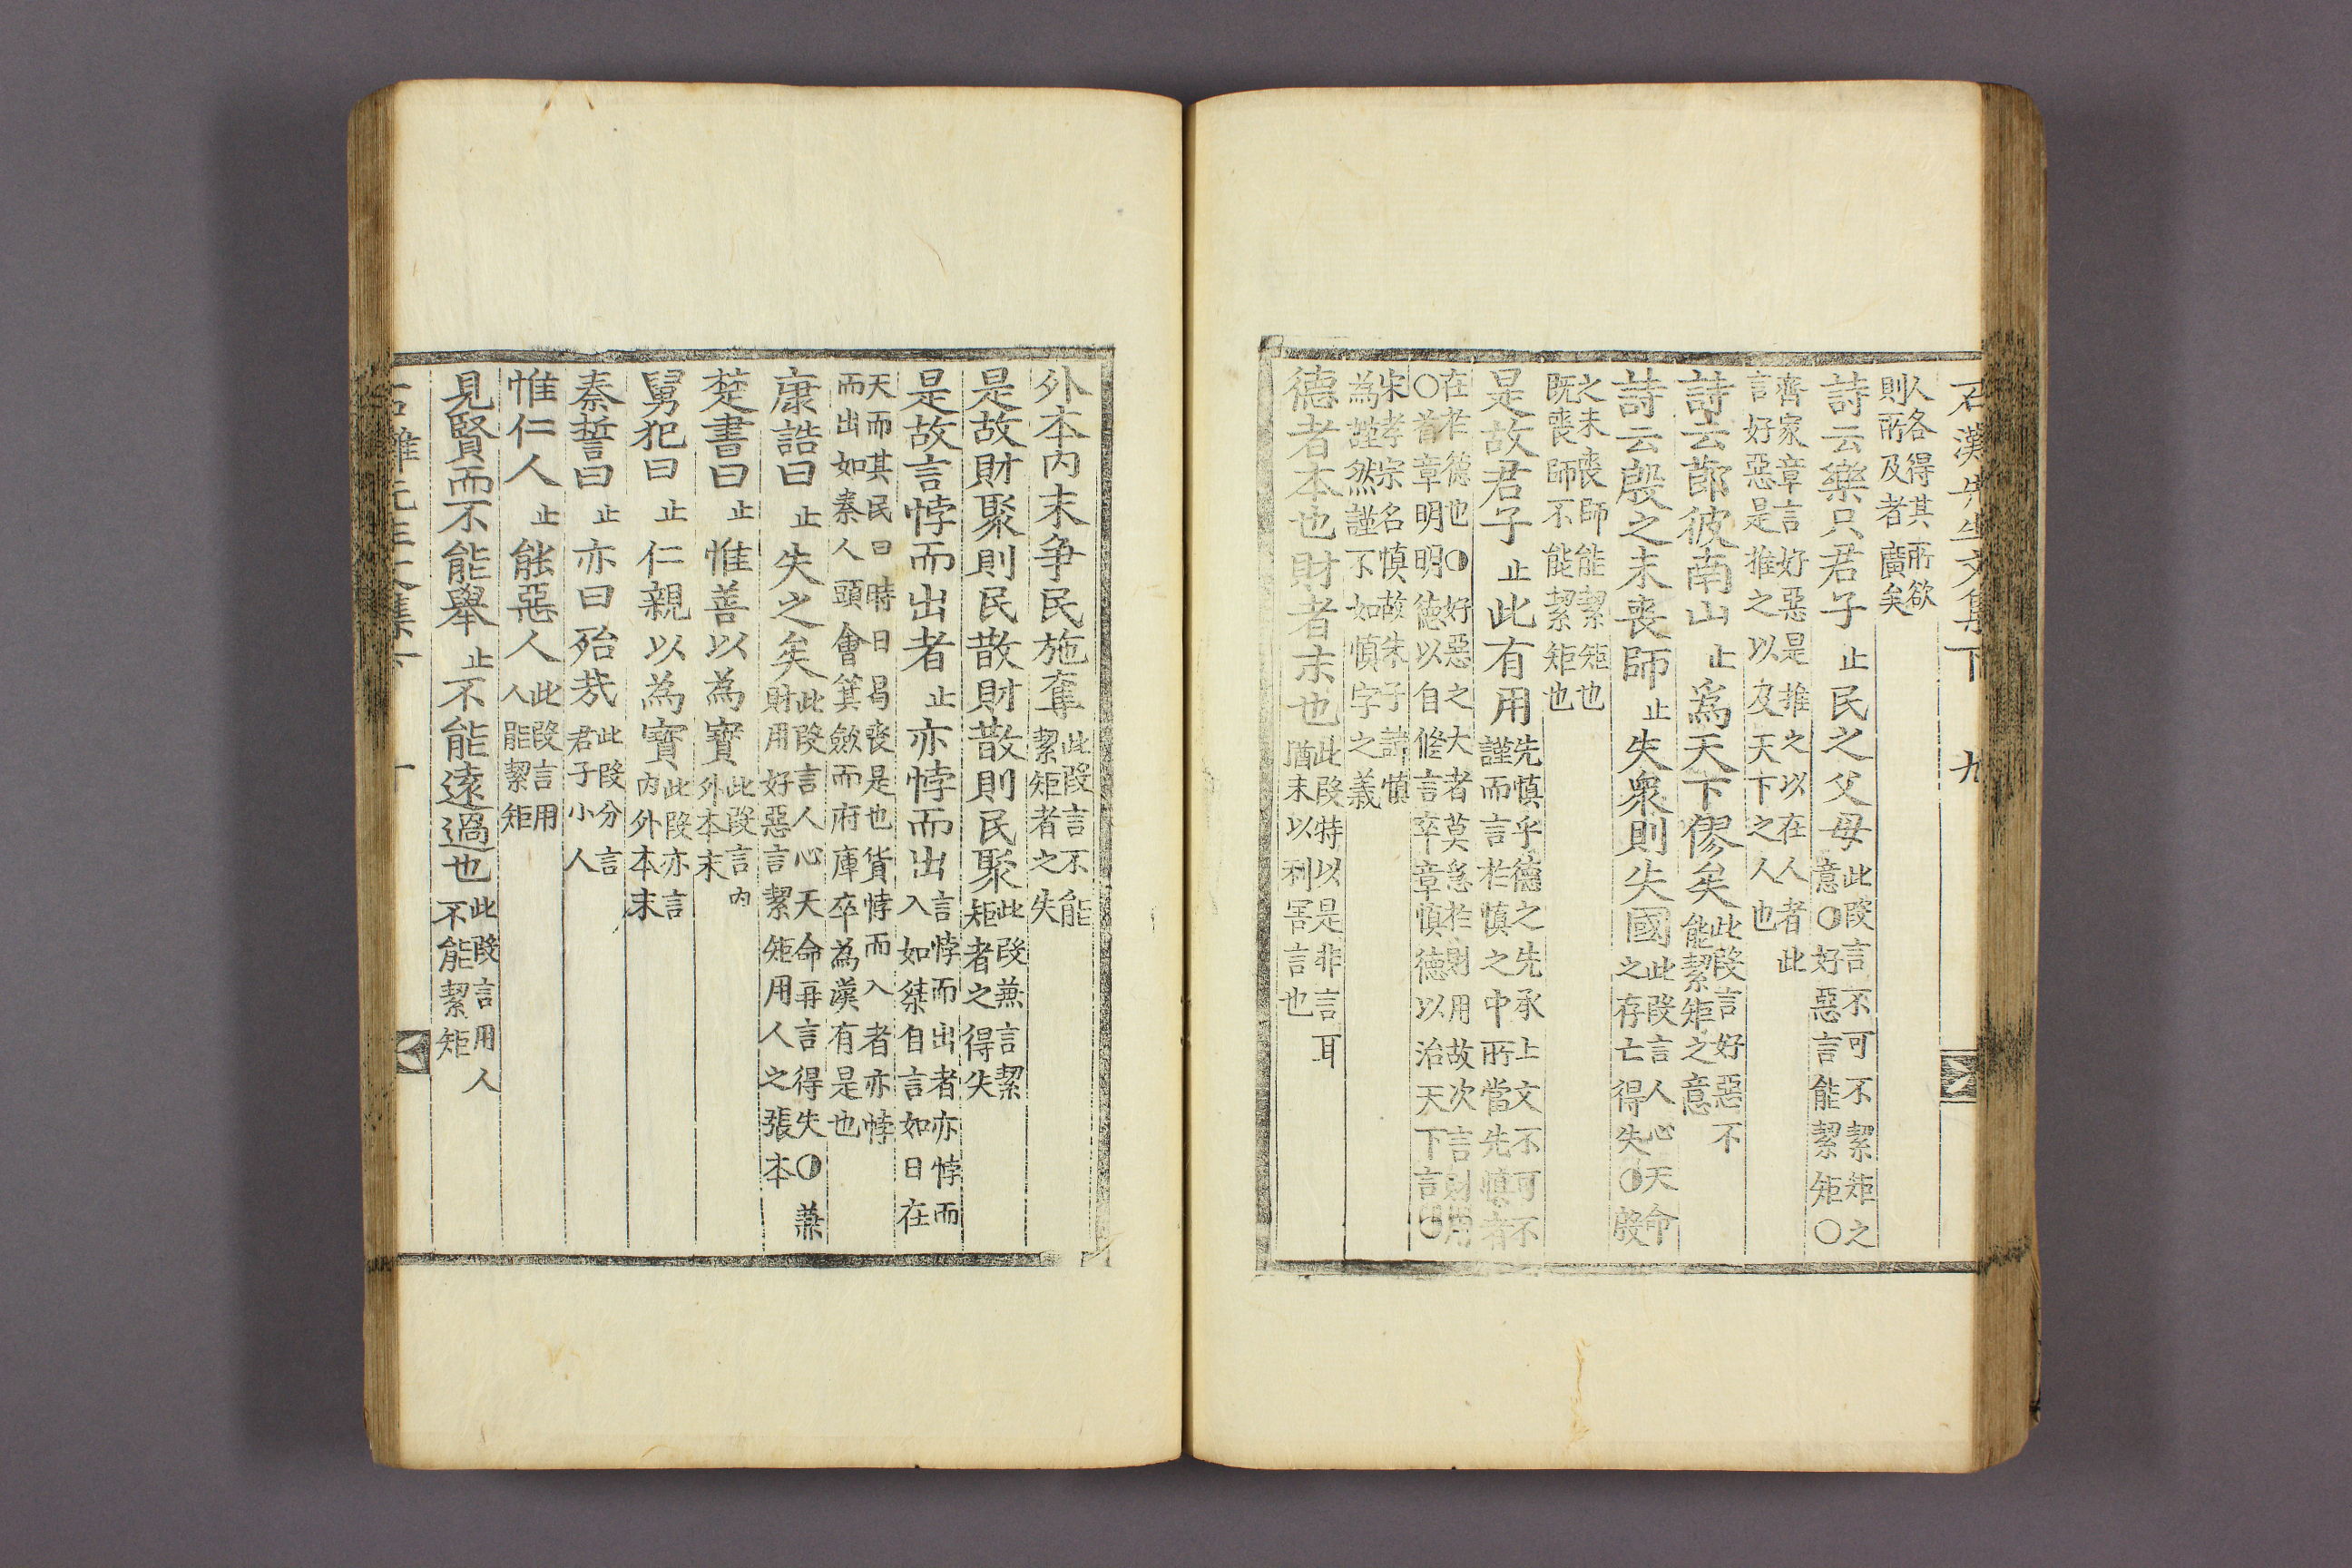 石灘先生文集下 九
人各得其所欲
則所及者廣矣
詩云樂只君子止民之父母此段言不可不絜矩之
意◑好惡言能絜矩○
齊家章言好惡是推之以在人者此
言好惡是推之以及天下之人也
詩云節彼南山止爲天下僇矣此段言好惡不
能絜矩之意
詩云殷之未喪師止失衆則失國此段言人心天命
之存亡得失◑殷
之未喪師能絜矩也
既喪師不能絜矩也
是故君子止此有用先慎乎德之先承上文不可不
謹而言於慎之中所當先慎者
在於德也◑好惡之大者莫急於財用故次言財用
○首章明明德以自修言卒章慎德以治天下言○
宋孝宗名慎故朱子諱慎
為謹然謹不如慎字之義
德者本也財者末也此段特以是非言耳
猶未以利害言也
外本内末争民施奪此段言不能
絜矩者之失
是故財聚則民散財散則民聚此段兼言絜
矩者之得失
是故言悖而出者止亦悖而出言悖而出者亦悖而
入如桀自言如日在
天而其民曰時日曷喪是也貨悖而入者亦悖
而出如秦人頭會箕斂而府庫卒為漢有是也
康誥曰止失之矣此段言人心天命再言得失◑兼
財用好惡言絜矩用人之張本
楚書曰止惟善以為寶此段言内
外本末
舅犯曰止仁親以為寶此段亦言
内外本末
秦誓曰止亦曰殆哉此段分言
君子小人
惟仁人止能惡人此段言用
人能絜矩
見賢而不能舉止不能遠過也此段言用人
不能絜矩